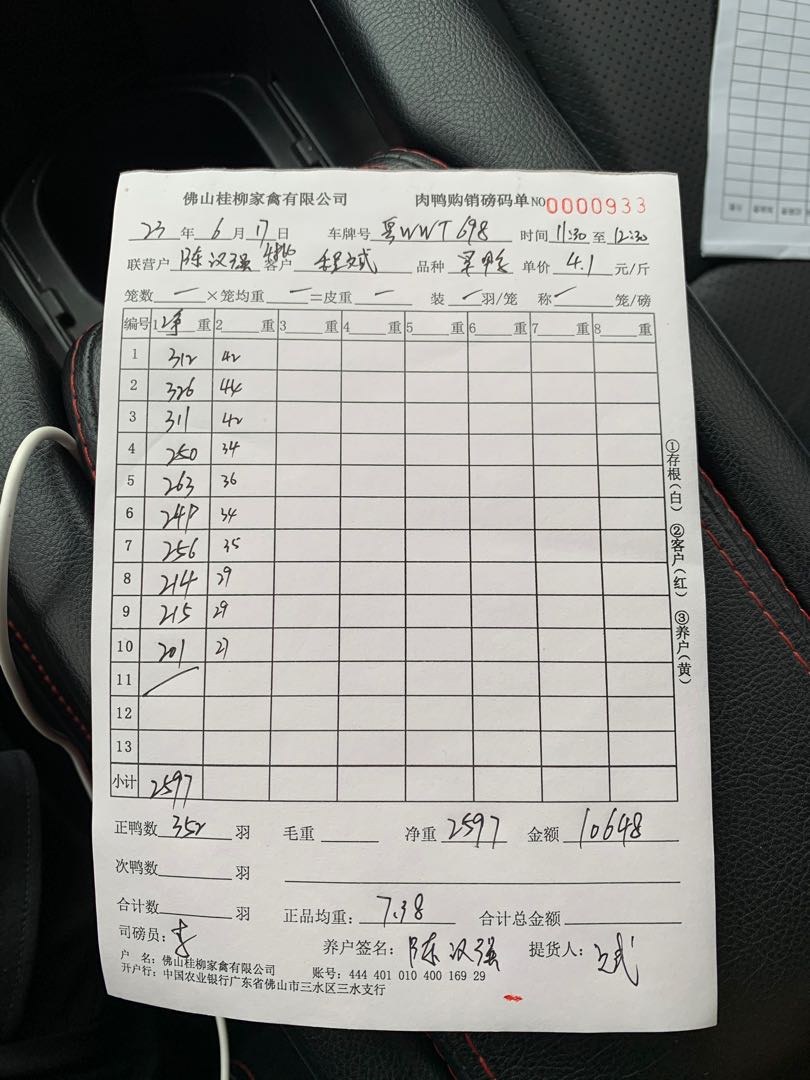 佛山桂柳家禽有限公司 肉鸭购销磅码单 NO 0000933
23 年 6 月 17 日 车牌号 粤WWT698 时间 11:30 至 12:30
联营户 陈汉强 客户 品种 单价 4.1 元/斤
笼数 一 ×笼均重 一 =皮重 一 装 一 羽/笼 称 一 笼/磅
编号 1 净 重 2 重 3 重 4 重 5 重 6 重 7 重 8 重
1 312 42
2 326 44
3 311 42
4 250 34
5 263 36
6 249 34
7 256 35
8 214 29
9 215 29
10 201 27
11
12
13
小计 2597
①存根(白) ②客户(红) ③养户(黄)
正鸭数 352 羽 毛重 净重 2597 金额 10648
次鸭数 羽
合计数 羽 正品均重: 7.38 合计总金额
司磅员: 李 养户签名: 陈汉强 提货人:
户 名: 佛山桂柳家禽有限公司 账号: 444 401 010 400 169 29
开户行: 中国农业银行广东省佛山市三水区三水支行